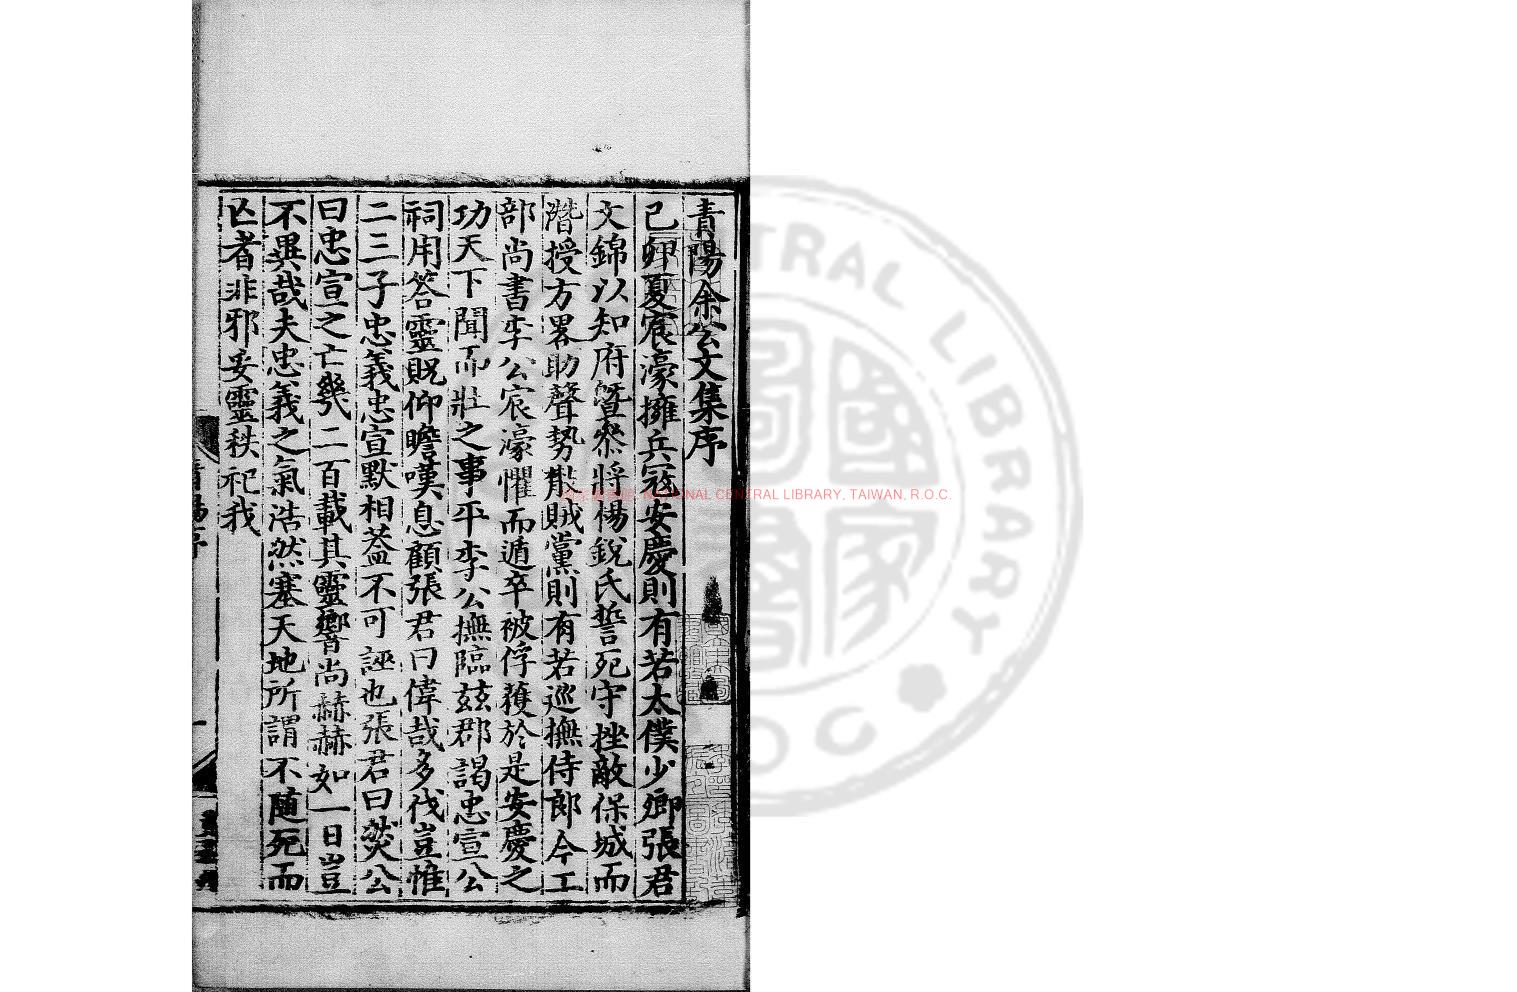 青陽余公文集序
己卯夏宸濠擁兵寇安慶則有若太僕少卿張君
文錦以知府暨叅將楊銳氏誓死守挫敵保城而
潛授方畧助聲勢散賊黨則有若巡撫侍郎今工
部尚書李公宸濠懼而遁卒被俘獲於是安慶之
功天下聞而壯之事平李公撫臨兹郡謁忠宣公
祠用答靈貺仰瞻嘆息顧張君曰偉哉多伐豈惟
二三子忠義忠宣默相葢不可誣也張君曰然公
曰忠宣之亡幾二百載其靈響尚赫赫如一日豈
不異哉夫忠義之氣浩然塞天地所謂不随死而
亾者非邪妥靈秩祀我
NATIONAL CENTRAL LIBRARY, TAIWAN, R.O.C.